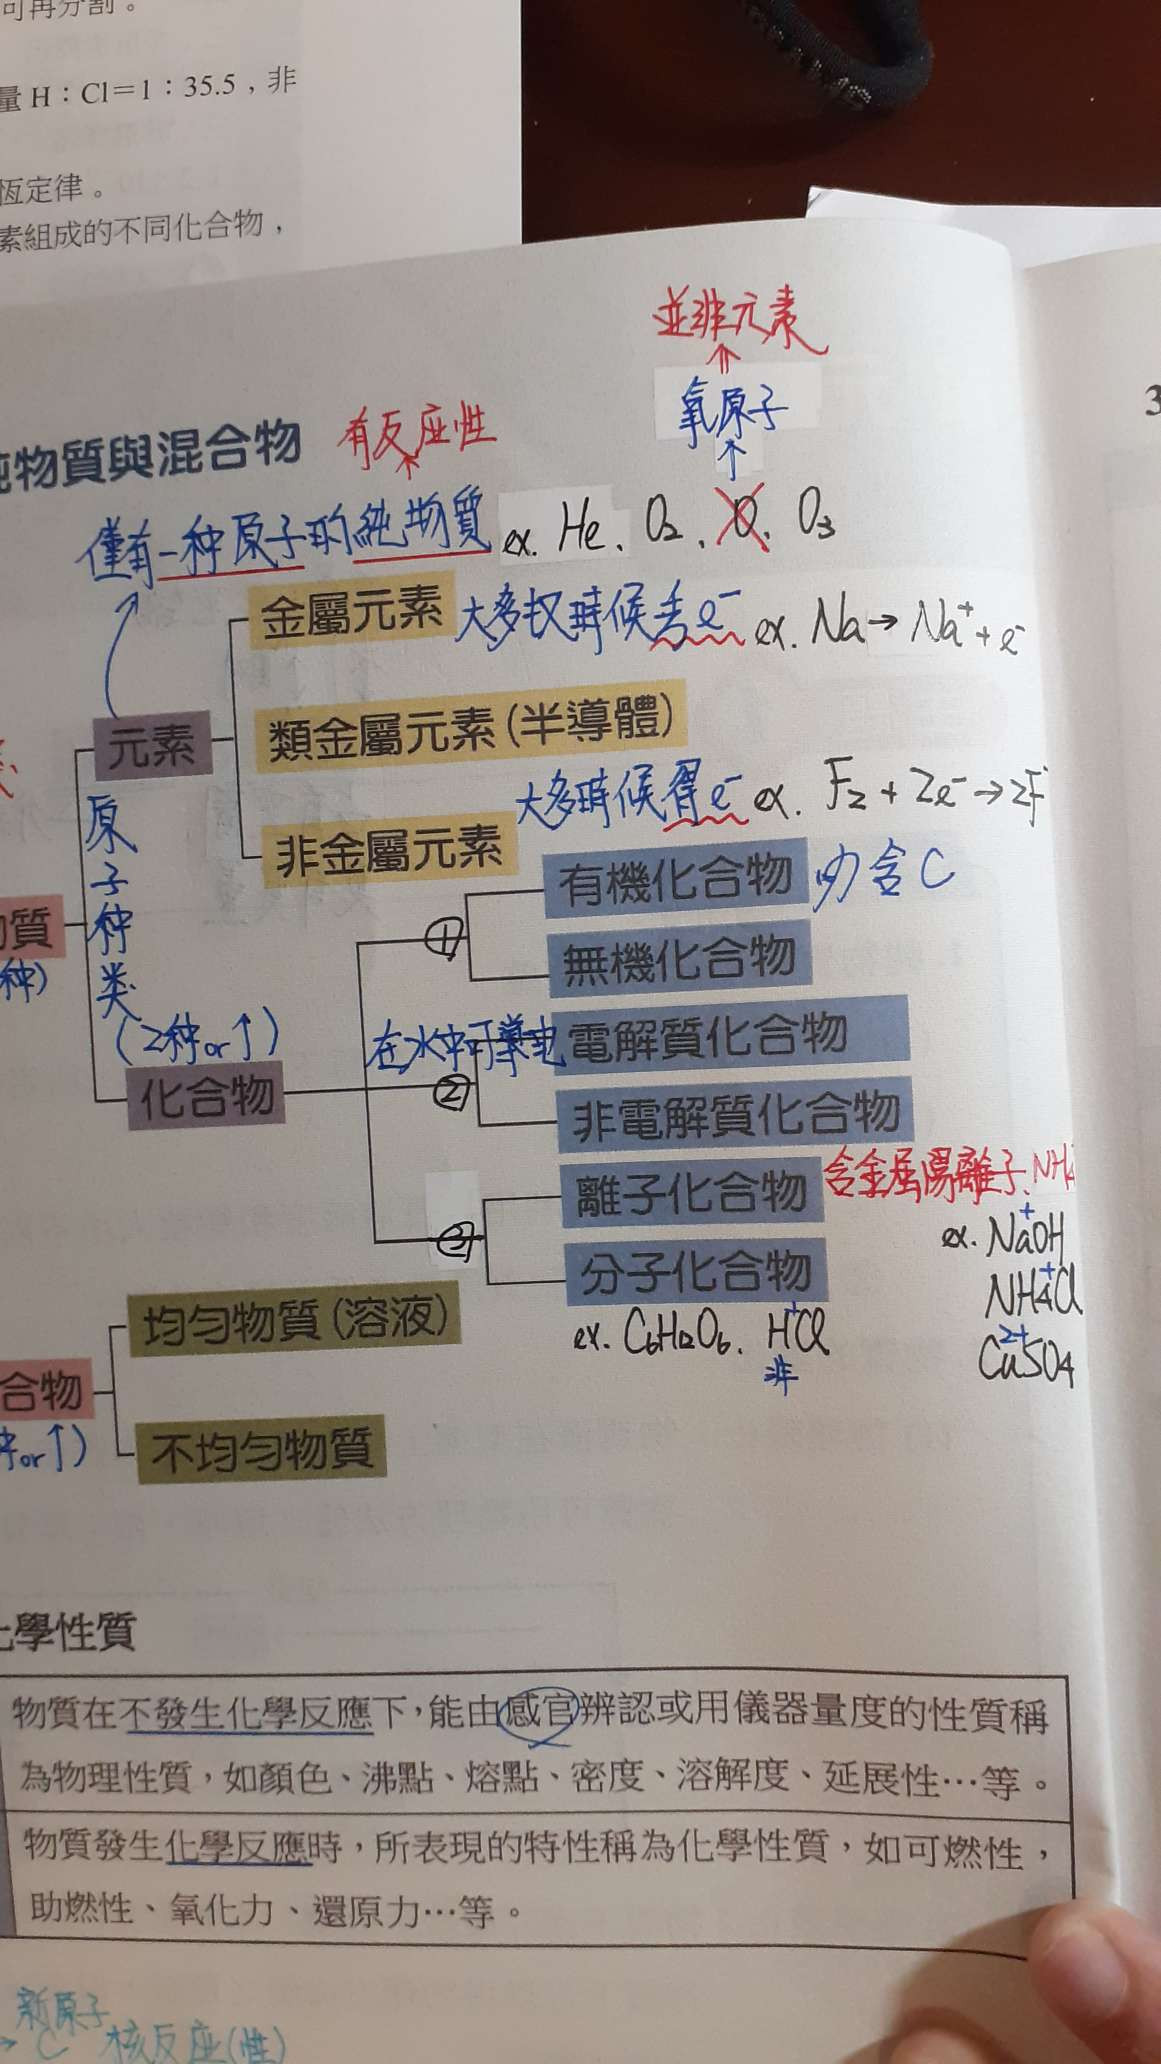 可再分割。
量 H：Cl＝1：35.5，非
恆定律。
素組成的不同化合物，
並非元素
氧原子
3
純物質與混合物 有反应性
僅有一种原子的純物質 ex. He、O₂、O、O₃
金屬元素 大多數時候丢e⁻ ex. Na→Na⁺+e⁻
元素
類金屬元素（半導體）
大多時候得e⁻ ex. F₂+2e⁻→2F⁻
非金屬元素
原子种类
(2种or↑)
物質
种)
化合物
① 有機化合物 必含C
無機化合物
② 在水中可導電 電解質化合物
非電解質化合物
③ 離子化合物 含金屬陽離子、NH₄⁺
ex. NaOH
NH₄Cl
CuSO₄
+
+
2+
分子化合物
ex. C₆H₁₂O₆、HCl
+
非
均勻物質（溶液）
合物
种or↑)
不均勻物質
化學性質
物質在不發生化學反應下，能由感官辨認或用儀器量度的性質稱
為物理性質，如顏色、沸點、熔點、密度、溶解度、延展性…等。
物質發生化學反應時，所表現的特性稱為化學性質，如可燃性，
助燃性、氧化力、還原力…等。
新原子
→ C 核反应(性)